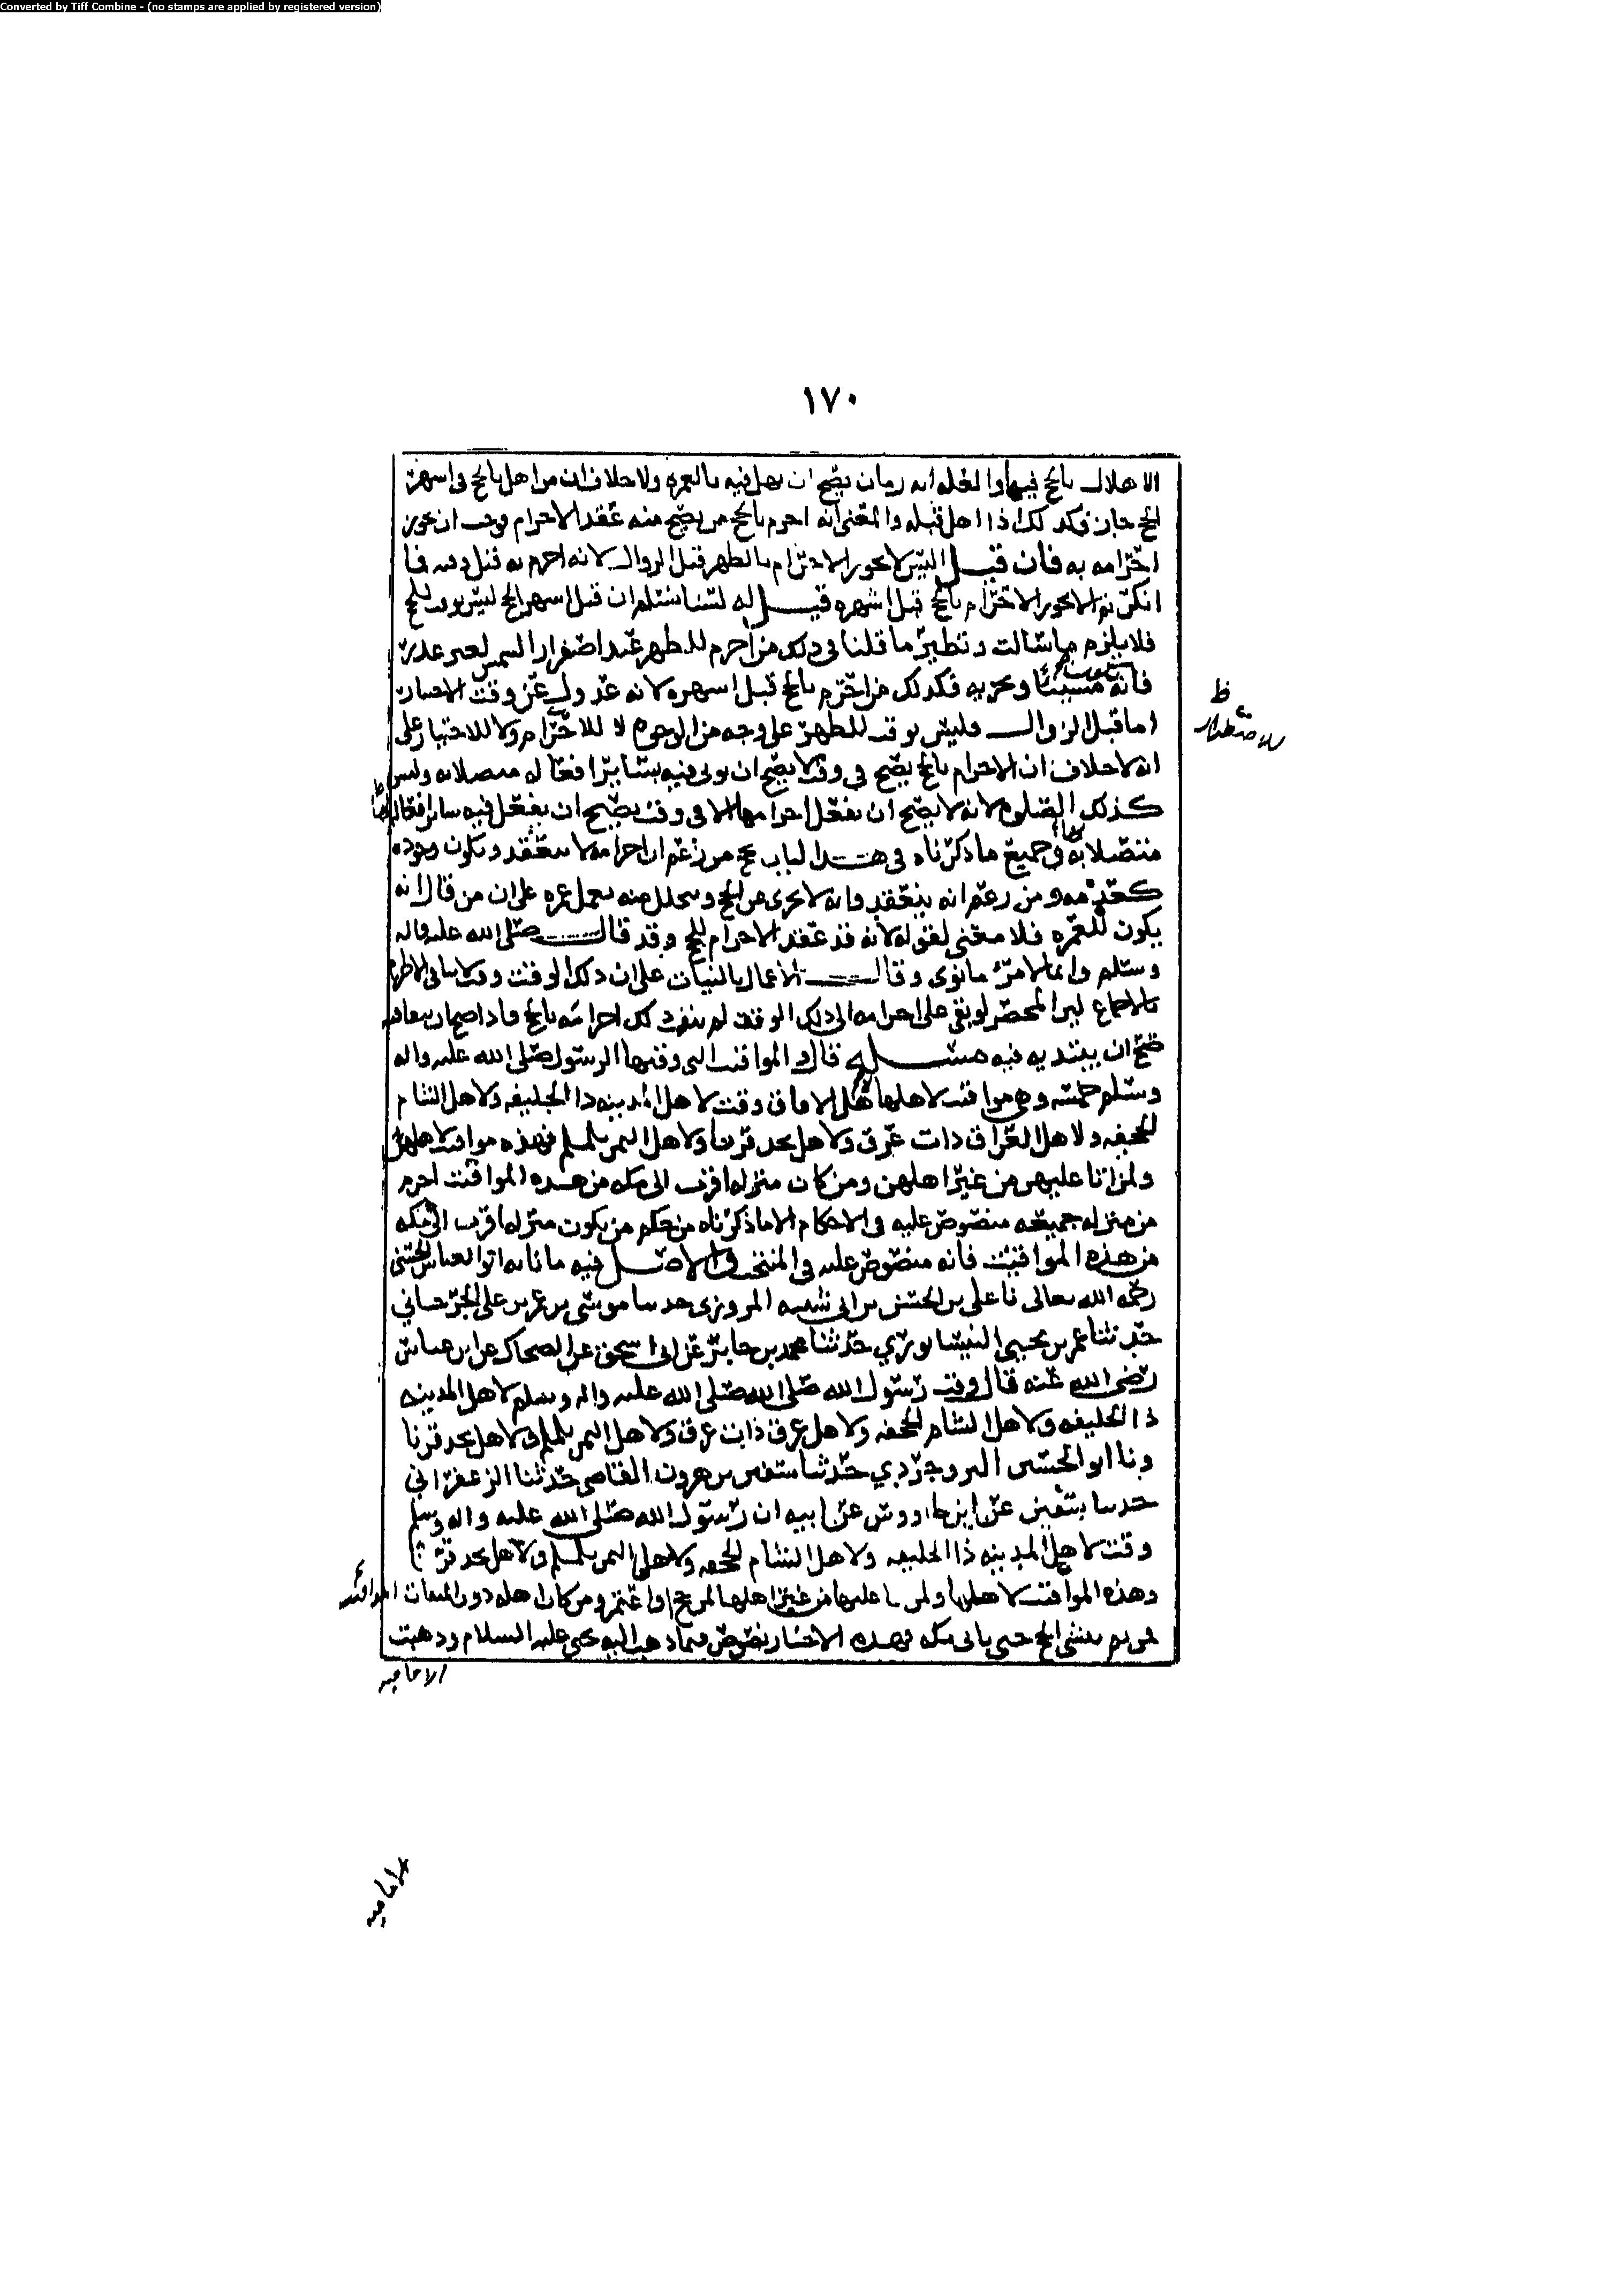 Converted by Tiff Combine - (no stamps are applied by registered version)
١٧٠
الاهلال بالحج فيها والعله انه زمان يصح ان يهل فيه بالعمره ولا خلاف ان من اهل بالحج في اشهر
الحج جاز فكذلك اذا اهل قبله والمعنى انه احرم بالحج من يصح منه عقد الاحرام فوجب ان يجوز
احرامه به فان قيل اليس لا يجوز الاحرام بالظهر قبل الزوال لانه احرم به قبل وقته فما
انكرتم الا يجوز الاحرام بالحج قبل اشهره قيل له لسنا نسلم ان قبل اشهر الحج ليس بوقت للحج
فلا يلزم ما سالت ونظير ما قلنا في ذلك من احرم للظهر عند اصفرار الشمس لغير عذر
فانه يكون مسيئا ويجزيه فكذلك من احرم بالحج قبل اشهره لانه عدول عن وقت الاختيار
ظ
للاضطرار
اما قبل الزوال فليس بوقت للظهر على وجه من الوجوه لا للاحرام ولا للاختيار على
انه لا خلاف ان الاحرام بالحج يصح في وقت لا يصح ان يوتى فيه بسائر افعاله متصلا به وليس
كذلك الصلوه لانه لا يصح ان يفعل احرامها الا في وقت يصح ان يفعل فيه سائر افعالها
متصلا به وجميع ما ذكرناه في هذا الباب يحج من زعم ان احرامه لا ينعقد ويكون وجوده
كعدمه ومن زعم انه ينعقد وانه لا يجزى عن الحج ويتحلل منه بعمل عمره على ان من قال انه
يكون للعمره فلا معنى لقوله لانه قد عقد الاحرام للحج وقد قال صلى الله عليه واله
وسلم وانما لامرئ ما نوى وقال الاعمال بالنيات على ان ذلك الوقت وقت لا ينافي الاحرام
بالاجماع المحصر لو بقي على احرامه الى ذلك الوقت لم يفسد ذلك احرامه بالحج فاذا صح ان يبقا فيه
صح ان يبتديه فيه مسئله قال والمواقيت التي وقتها الرسول صلى الله عليه واله
وسلم خمسه وهي مواقيت لاهلها اهل الافاق وقت لاهل المدينه ذا الحليفه ولاهل الشام
الجحفه ولاهل العراق ذات عرق ولاهل نجد قرنا ولاهل اليمن يلملم فهذه مواقيت لاهلهن
ولمن اتا عليهن من غير اهلهن ومن كان منزله اقرب الى مكه من هذه المواقيت احرم
من منزله جميعه منصوص عليه في الاحكام الا ما ذكرناه من حكم من يكون منزله اقرب الى مكه
من هذه المواقيت فانه منصوص عليه في المنتخب والاصل فيه ما نابه ابو العباس الحسني
رحمه الله تعالى نا علي بن الحسن بن ابي شيبه المروزي حدثنا موسى بن عمر بن علي الجرجاني
حدثنا عمر بن يحيى النيسابوري حدثنا محمد بن جابر عن ابي اسحق عن الضحاك عن ابن عباس
رضي الله عنه قال وقت رسول الله صلى الله صلى الله عليه واله وسلم لاهل المدينه
ذا الحليفه ولاهل الشام الجحفه ولاهل عرق ذات عرق ولاهل اليمن يلملم ولاهل نجد قرنا
ونا ابو الحسين البروجردي حدثنا سفين بن هرون القاضي حدثنا الزعفراني
حدثنا سفين عن ابن طاووس عن ابيه ان رسول الله صلى الله عليه واله وسلم
وقت لاهل المدينه ذا الحليفه ولاهل الشام الجحفه ولاهل اليمن يلملم ولاهل نجد قرنا
وهذه المواقيت لاهلها ولمن عليها من غير اهلها لمن حج او اعتمر ومن كان اهله دون الميقات
ينشئ الحج حتى ياتي مكه فهذه الاخبار نصوص فيما ذهب اليه يحيى عليه السلام وذهبت
الاماميه
الاماميه